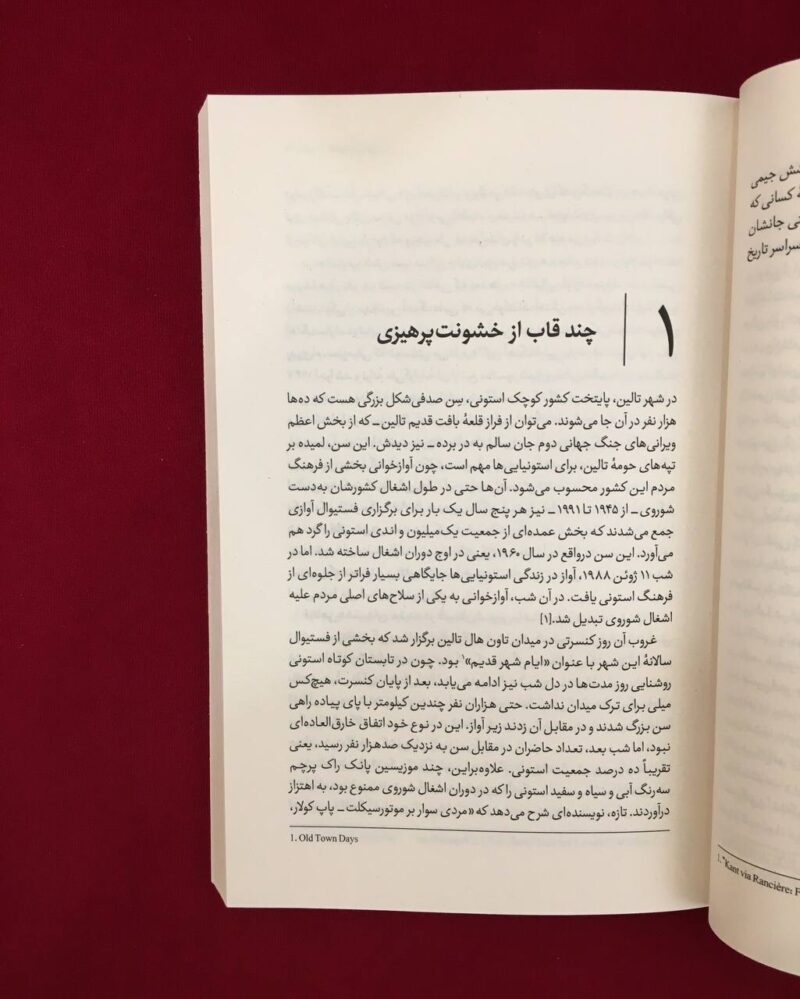 شش جیمی
کسانی که
جانشان
سراسر تاریخ
1. "Kant via Rancière: F
۱
چند قاب از خشونت‌پرهیزی
در شهر تالین، پایتخت کشور کوچک استونی، سِن صدفی‌شکل بزرگی هست که ده‌ها
هزار نفر در آن جا می‌شوند. می‌توان از فراز قلعهٔ بافت قدیم تالین ـ که از بخش اعظم
ویرانی‌های جنگ جهانی دوم جان سالم به در برده ـ نیز دیدش. این سن، لمیده بر
تپه‌های حومهٔ تالین، برای استونیایی‌ها مهم است، چون آوازخوانی بخشی از فرهنگ
مردم این کشور محسوب می‌شود. آن‌ها حتی در طول اشغال کشورشان به‌دست
شوروی ـ از ۱۹۴۵ تا ۱۹۹۱ ـ نیز هر پنج سال یک بار برای برگزاری فستیوال آوازی
جمع می‌شدند که بخش عمده‌ای از جمعیت یک‌میلیون و اندی استونی را گرد هم
می‌آورد. این سن درواقع در سال ۱۹۶۰، یعنی در اوج دوران اشغال ساخته شد. اما در
شب ۱۱ ژوئن ۱۹۸۸، آواز در زندگی استونیایی‌ها جایگاهی بسیار فراتر از جلوه‌ای از
فرهنگ استونی یافت. در آن شب، آوازخوانی به یکی از سلاح‌های اصلی مردم علیه
اشغال شوروی تبدیل شد.[۱]
غروب آن روز کنسرتی در میدان تاون هال تالین برگزار شد که بخشی از فستیوال
سالانهٔ این شهر با عنوان «ایام شهر قدیم»۱ بود. چون در تابستان کوتاه استونی
روشنایی روز مدت‌ها در دل شب نیز ادامه می‌یابد، بعد از پایان کنسرت، هیچ‌کس
میلی برای ترک میدان نداشت. حتی هزاران نفر چندین کیلومتر با پای پیاده راهی
سن بزرگ شدند و در مقابل آن زدند زیر آواز. این در نوع خود اتفاق خارق‌العاده‌ای
نبود، اما شب بعد، تعداد حاضران در مقابل سن به نزدیک صدهزار نفر رسید، یعنی
تقریباً ده درصد جمعیت استونی. علاوه‌براین، چند موزیسین پانک راک پرچم
سه‌رنگ آبی و سیاه و سفید استونی را که در دوران اشغال شوروی ممنوع بود، به اهتزاز
درآوردند. تازه، نویسنده‌ای شرح می‌دهد که «مردی سوار بر موتورسیکلت ـ پاپ کولار،
1. Old Town Days